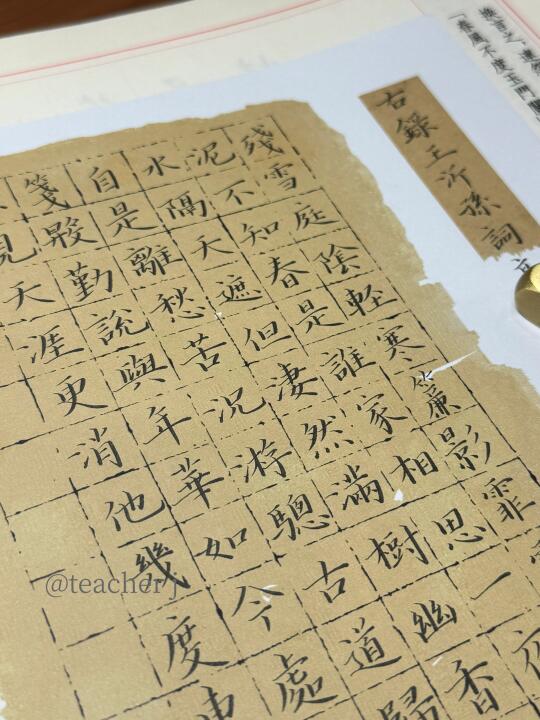 換言之
不度玉門
古錄王沂孫詞
殘雪庭陰輕寒簾影霏
泥不知春是誰家相思一夜
水隔天遮但淒然滿樹幽香
自是離愁苦況游驄古道歸
箋殷勤說與年華如今處
見天涯更消他幾度東
@teacher j